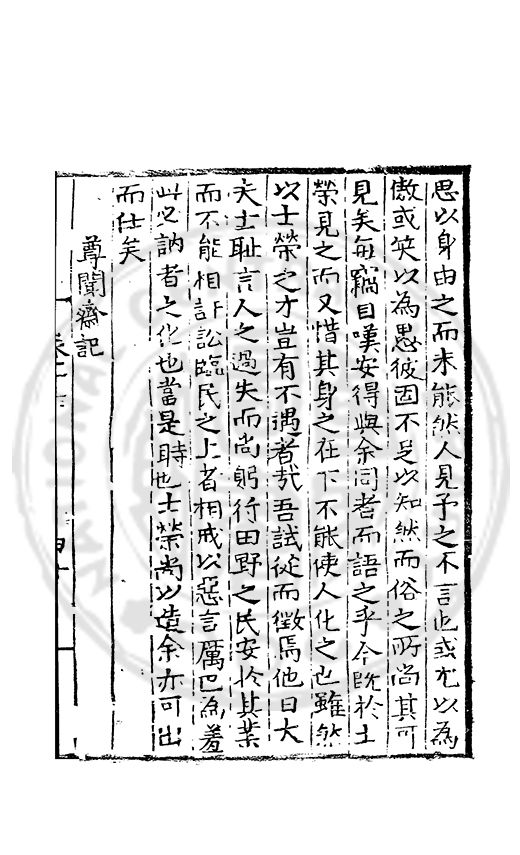 思以身由之而未能然人見予之不言也或尤以為
傲或笑以為愚彼固不足以知然而俗之所尚其可
見矣每竊自嘆安得與余同者而語之乎今既於士
榮見之而又惜其身之在下不能使人化之也雖然
以士榮之才豈有不遇者哉吾試從而徵焉他日大
夫士恥言人之過失而尚躬行田野之民安於其業
而不能相訐訟臨民之上者相戒以惡言厲色為羞
此必訥者之化也當是時也士榮尚以造余亦可出
而仕矣
尊聞齋記